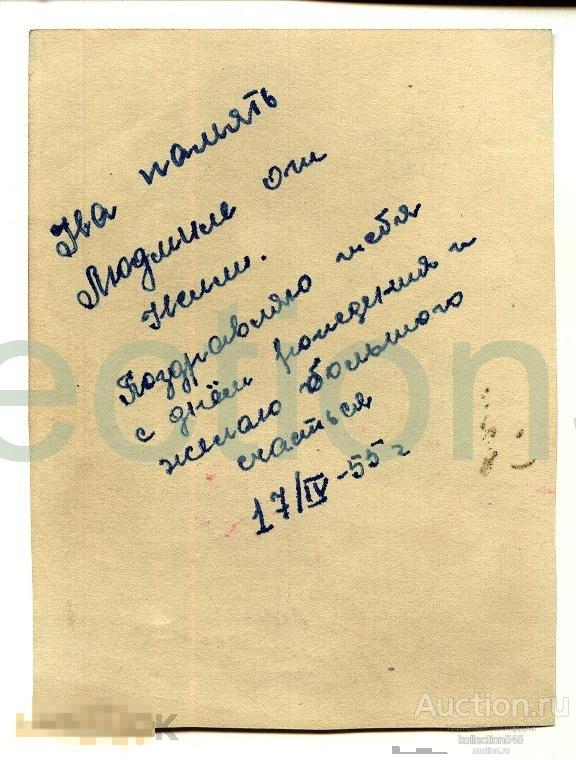 На память
Людмиле от
Нелли.
Поздравляю тебя
с днём рождения и
желаю большого
счастья
17/IV-55г
ection
Auction.ru
kollection545
auction.ru